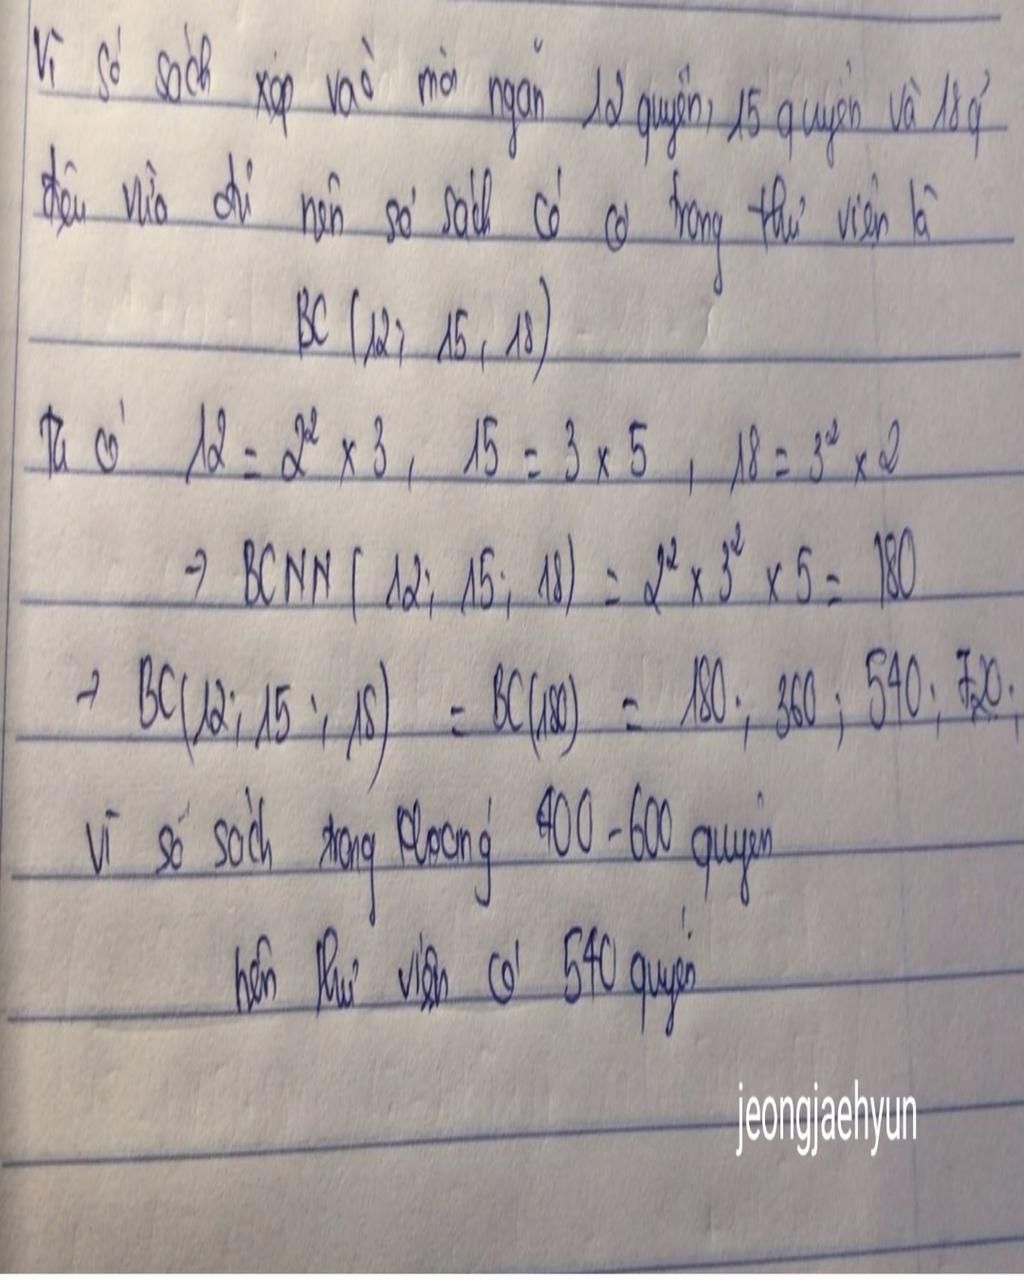 Vì số sách xếp vào mỗi ngăn 12 quyển, 15 quyển và 18 q
đều vừa đủ nên số sách có có trong thư viện là
BC (12; 15, 18)
Ta có 12 = 2² x 3, 15 = 3 x 5, 18 = 3² x 2
→ BCNN (12; 15; 18) = 2² x 3² x 5 = 180
→ BC(12; 15; 18) = BC(180) = 180; 360; 540; 720;
Vì số sách trong khoảng 400-600 quyển
nên thư viện có 540 quyển
jeongjaehyun